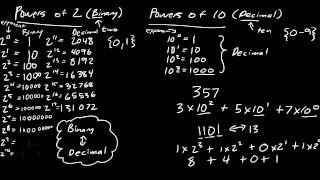 Powers of 2 (Binary)
exponent
Binary Decimal two {0,1}
2^0 = 1 2^11 = 2048
2^1 = 10 2^12 = 4096
2^2 = 100 2^13 = 8192
2^3 = 1000 2^14 = 16384
2^4 = 10000 2^15 = 32768
2^5 = 100000 2^16 = 65536
2^6 = 1000000 2^17 = 131072
2^7 = 10000000
2^8 = 100000000
2^9 =
2^10 =
Binary
↕
Decimal
Powers of 10 (Decimal)
exponent ten {0-9}
10^0 = 1
10^1 = 10
10^2 = 100
10^3 = 1000
Decimal
357
3×10^2 + 5×10^1 + 7×10^0
1101 ↔ 13
1×2^3 + 1×2^2 + 0×2^1 + 1×2^0
8 + 4 + 0 + 1